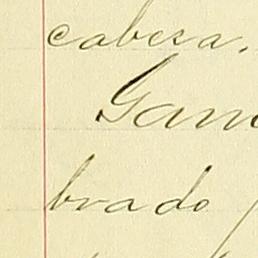 cabeza.
Gam
brado